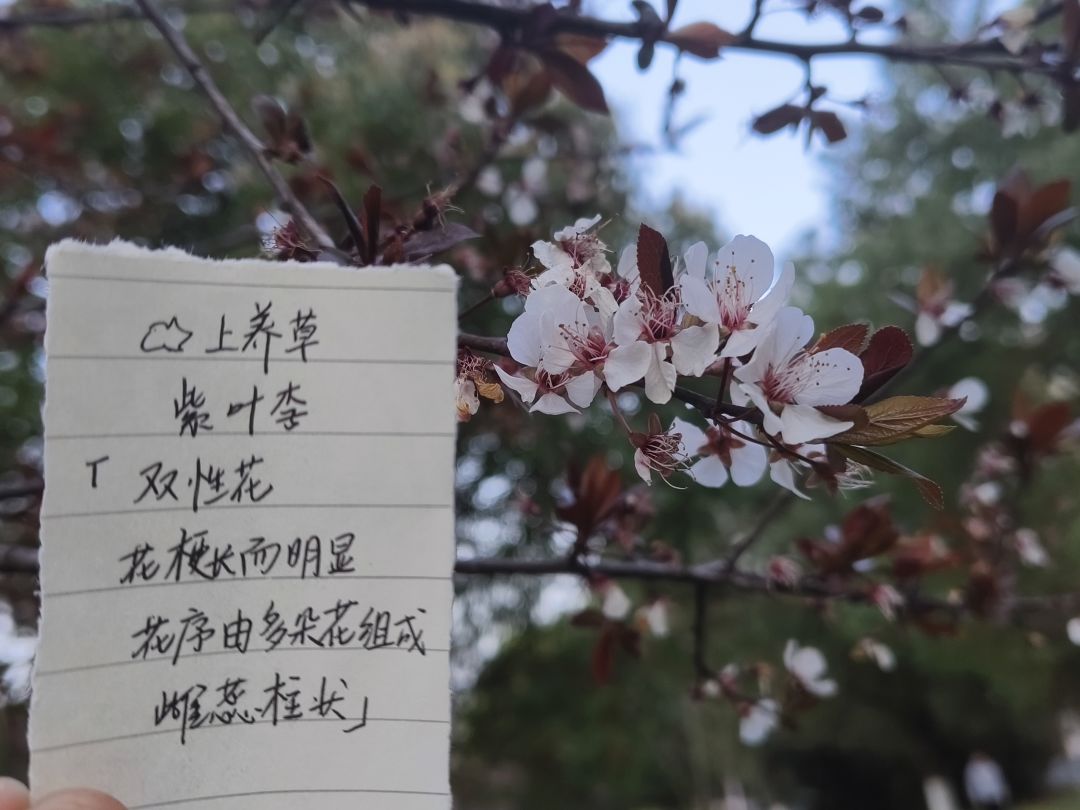 上养草
紫叶李
「双性花
花梗长而明显
花序由多朵花组成
雌蕊柱状」